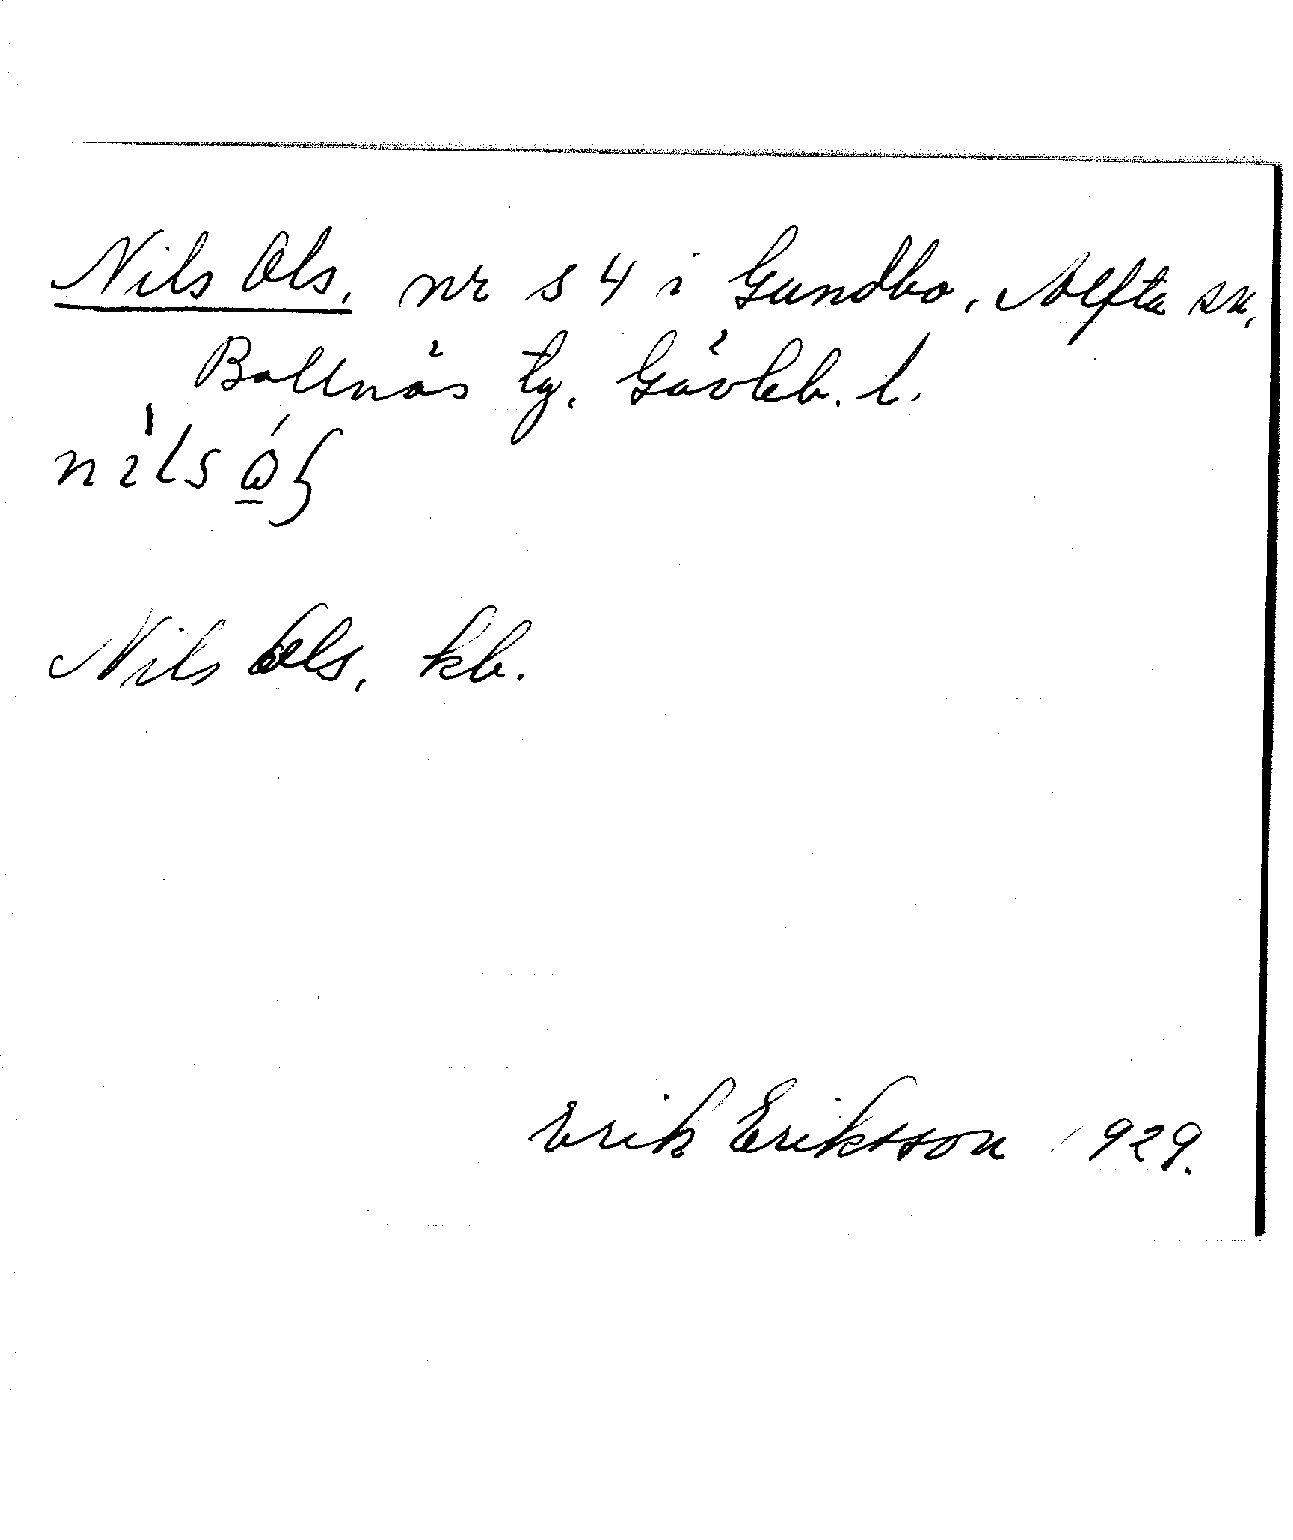 Nils Ols, nr s 4 i Gundbo, Alfta sn,
Bollnäs tg. Gävleb. l.
Nils Ols, kb.
Erik Eriksson 1929.